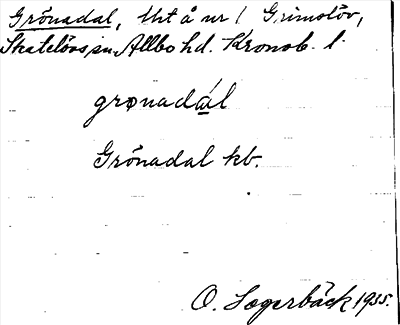 Grönadal, lht å nr 1 Grimslöv,
Skatelövs sn. Allbo hd. Kronob. l.
grønadál
Grönadal kb.
O. Sagerbäck 1935.